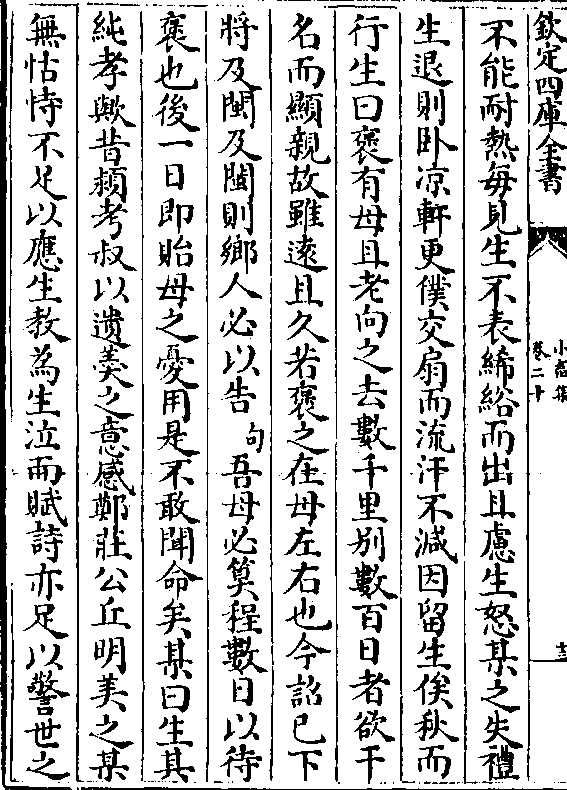 欽定四庫全書
小畜集
卷二十
十三
不能耐熱每見生不表絺綌而出且慮生怒某之失禮
生退則卧凉軒更僕交扇而流汗不減因留生俟秋而
行生曰褒有母且老向之去數千里别數百日者欲干
名而顯親故雖遠且久若褒之在母左右也今詔已下
將及閩及閩則鄉人必以告句吾母必算程數日以待
褒也後一日即貽母之憂用是不敢聞命矣某曰生其
純孝歟昔潁考叔以遺羮之意感鄭莊公丘明美之某
無怙恃不足以應生教為生泣而賦詩亦足以警世之